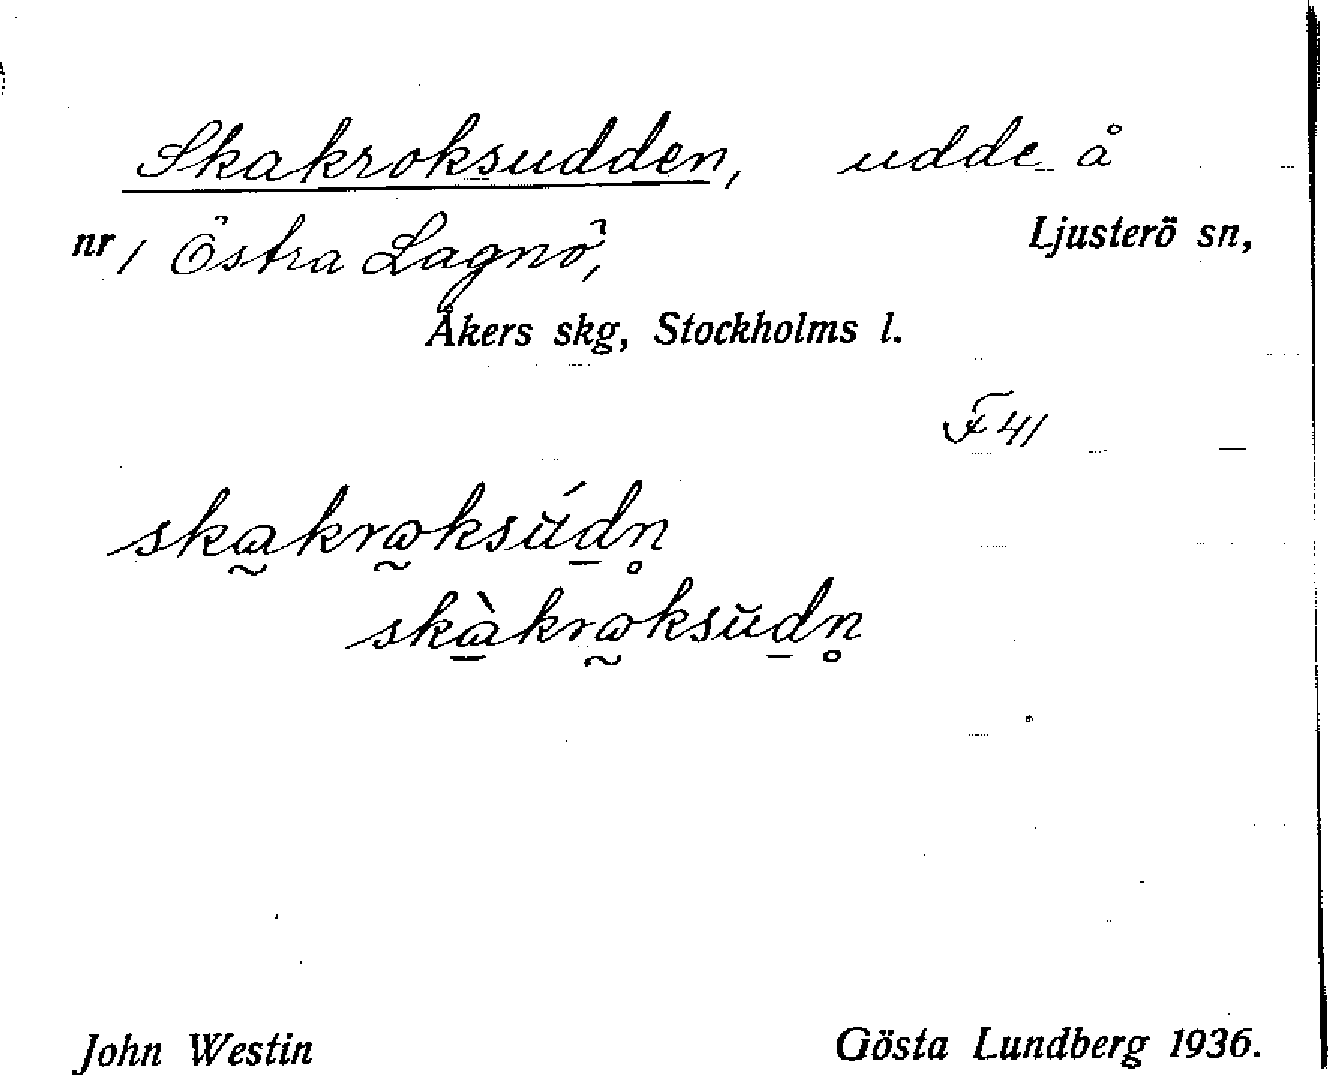 Skakroksudden, udde å
nr 1 Östra Lagnö, Ljusterö sn,
Åkers skg, Stockholms l.
F 41
skɷ̰krɷ̰ksŭ́d̲n̥
skɷ̲̀krɷ̰ksŭd̲n̥
John Westin Gösta Lundberg 1936.